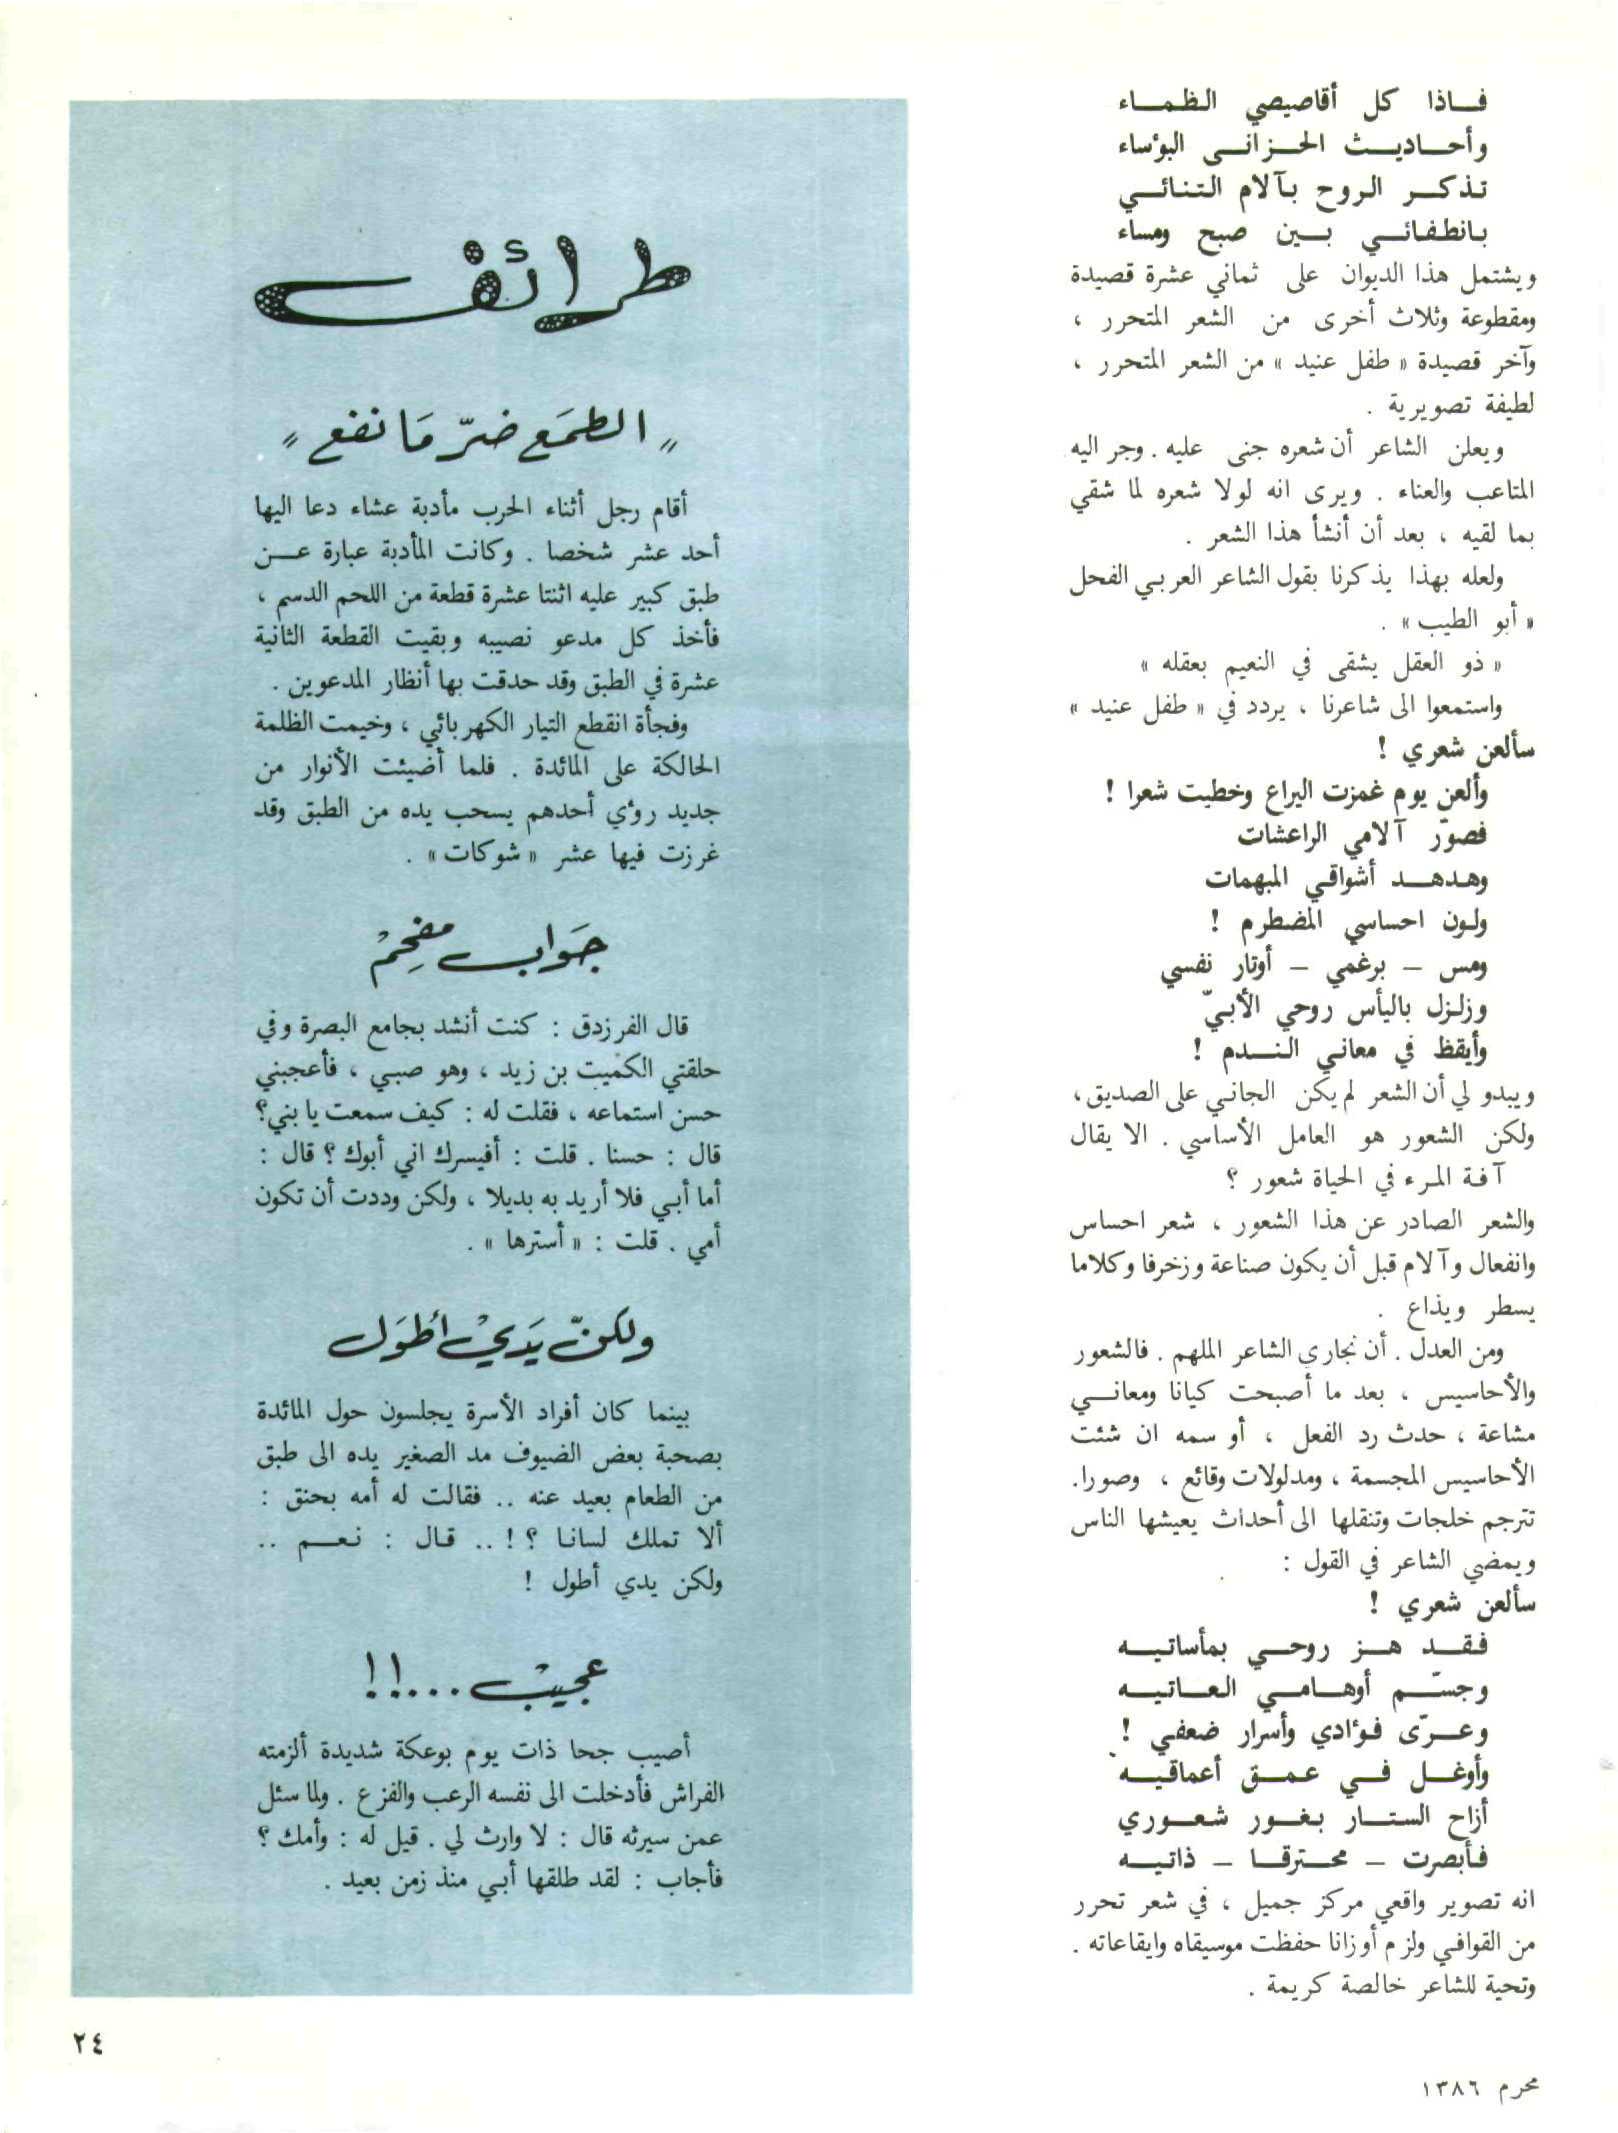 فــاذا كل أقاصيصي الظمــاء
وأحــاديــث الحــزانــى البؤساء
تـذكــر الروح بـآلام التـنائــي
بـانطفـائــي بــين صبح ومساء
ويشتمل هذا الديوان على ثماني عشرة قصيدة
ومقطوعة وثلاث أخرى من الشعر المتحرر ،
وآخر قصيدة « طفل عنيد » من الشعر المتحرر ،
لطيفة تصويرية .
ويعلن الشاعر أن شعره جنى عليه . وجر اليه
المتاعب والعناء . ويرى انه لولا شعره لما شقي
بما لقيه ، بعد أن أنشأ هذا الشعر .
ولعله بهذا يذكرنا بقول الشاعر العربي الفحل
« أبو الطيب » .
« ذو العقل يشقى في النعيم بعقله »
واستمعوا الى شاعرنا ، يردد في « طفل عنيد »
سألعن شعري !
وألعن يوم غمزت اليراع وخطيت شعرا !
فصوّر آلامي الراعشات
وهـدهــد أشواقي المبهمات
ولـون احساسي المضطرم !
ومس – برغمي – أوتار نفسي
وزلـزل باليأس روحي الأبيّ
وأيقظ في معاني النــدم !
ويبدو لي أن الشعر لم يكن الجاني على الصديق،
ولكن الشعور هو العامل الأساسي . الا يقال
آفـة المـرء في الحياة شعور ؟
والشعر الصادر عن هذا الشعور ، شعر احساس
وانفعال وآلام قبل أن يكون صناعة وزخرفا وكلاما
يسطر ويذاع .
ومن العدل . أن نجاري الشاعر الملهم . فالشعور
والأحاسيس ، بعد ما أصبحت كيانا ومعانــي
مشاعة ، حدث رد الفعل ، أو سمه ان شئت
الأحاسيس المجسمة ، ومدلولات وقائع ، وصورا.
تترجم خلجات وتنقلها الى أحداث يعيشها الناس
ويمضي الشاعر في القول :
سألعن شعري !
فـقــد هــز روحــي بمأساتيــه
وجسّــم أوهــامــي العــاتيــه
وعــرّى فـؤادي وأسرار ضعفي !
وأوغــل فــي عمــق أعماقيــه
أزاح الستــار بـغــور شعــوري
فـأبصرت – محــترقــا – ذاتيــه
انه تصوير واقعي مركز جميل ، في شعر تحرر
من القوافي ولزم أوزانا حفظت موسيقاه وايقاعاته .
وتحية للشاعر خالصة كريمة .
طرائف
„ الطمَع ضرّ مَا نفع “
أقام رجل أثناء الحرب مأدبة عشاء دعا اليها
أحد عشر شخصا . وكانت المأدبة عبارة عــن
طبق كبير عليه اثنتا عشرة قطعة من اللحم الدسم ،
فأخذ كل مدعو نصيبه وبقيت القطعة الثانية
عشرة في الطبق وقد حدقت بها أنظار المدعوين .
وفجأة انقطع التيار الكهربائي ، وخيمت الظلمة
الحالكة على المائدة . فلما أضيئت الأنوار من
جديد رؤي أحدهم يسحب يده من الطبق وقد
غرزت فيها عشر « شوكات » .
جَوَاب مفحِمْ
قال الفرزدق : كنت أنشد بجامع البصرة وفي
حلقتي الكميت بن زيد ، وهو صبي ، فأعجبني
حسن استماعه ، فقلت له : كيف سمعت يا بني؟
قال : حسنا . قلت : أفيسرك اني أبوك ؟ قال :
أما أبي فلا أريد به بديلا ، ولكن وددت أن تكون
أمي . قلت : « أسترها » .
ولكنّ يَديْ أطوَل
بينما كان أفراد الأسرة يجلسون حول المائدة
بصحبة بعض الضيوف مد الصغير يده الى طبق
من الطعام بعيد عنه .. فقالت له أمه بحنق :
ألا تملك لسانـا ؟ ! .. قـال : نـعــم ..
ولكن يدي أطول !
عجيبْ ...!!
أصيب جحا ذات يوم بوعكة شديدة ألزمته
الفراش فأدخلت الى نفسه الرعب والفزع . ولما سئل
عمن سيرثه قال : لا وارث لي . قيل له : وأمك ؟
فأجاب : لقد طلقها أبي منذ زمن بعيد .
محرم ١٣٨٦
٢٤